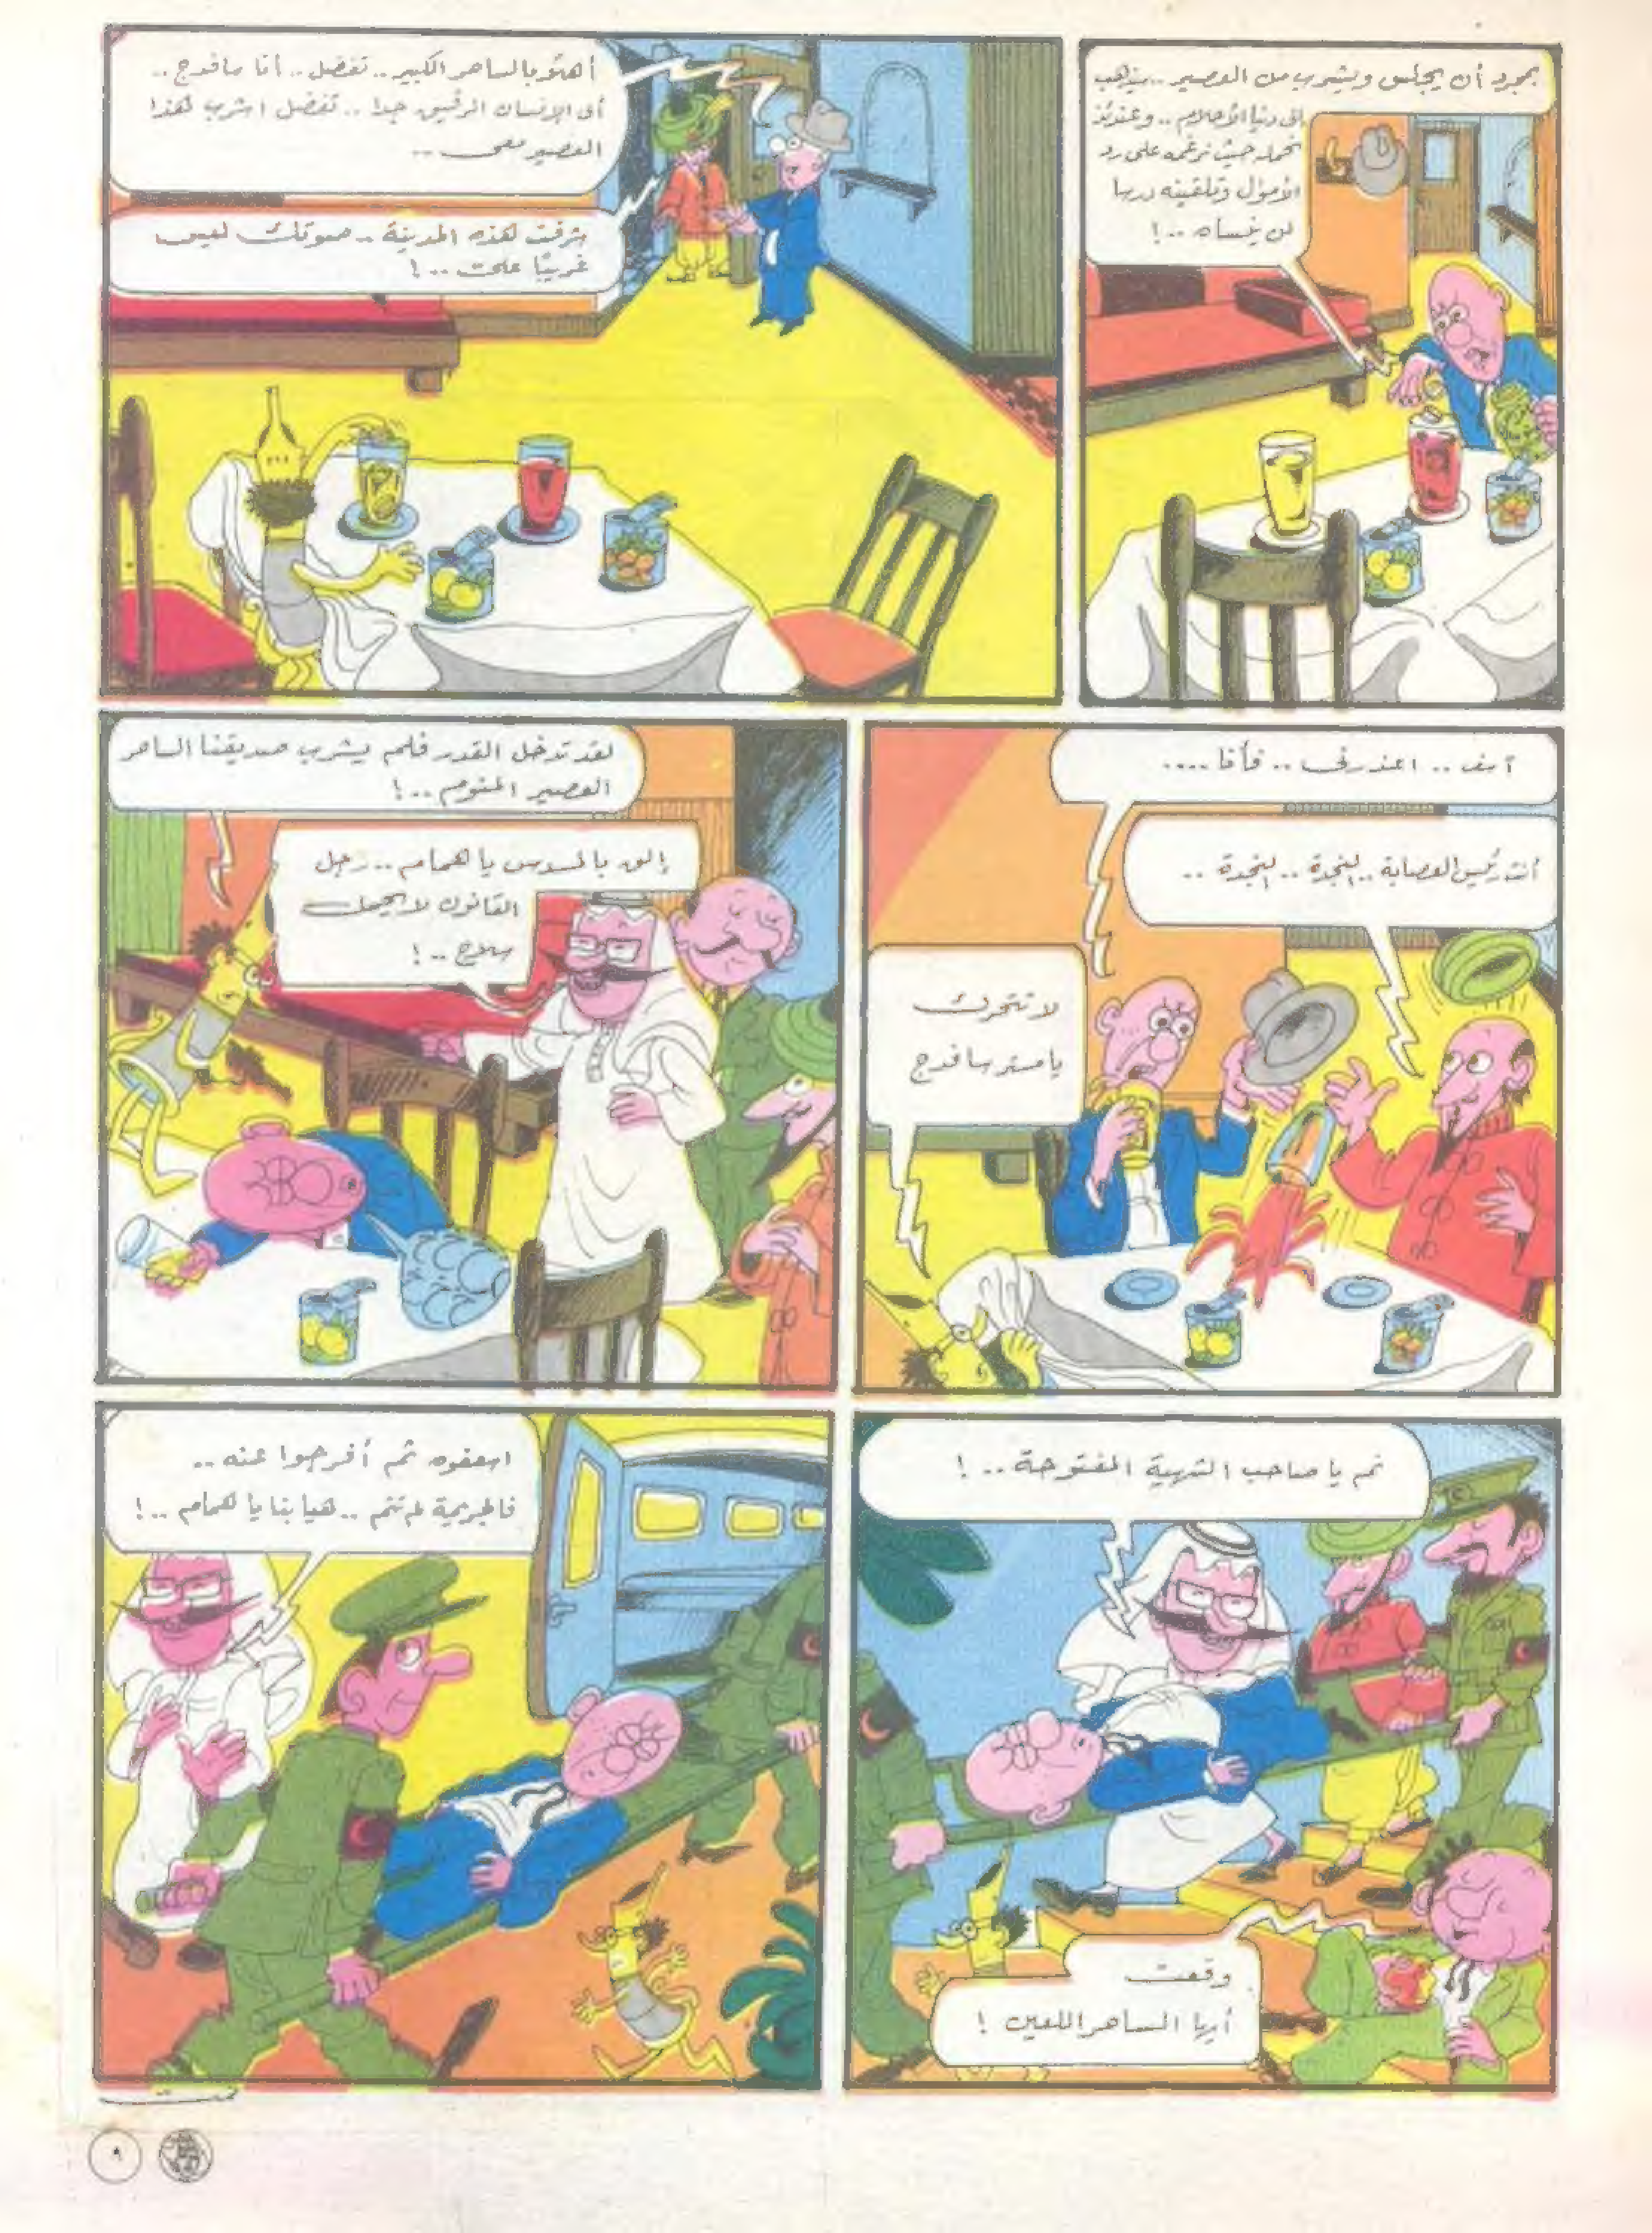 بمجرد أن يجلس ويشرب من العصير .. سيذهب
إلى دنيا الأحلام .. وعندئذ
نحمله حيث نرغمه على رد
الأموال وتلقينه درسا
لن ينساه .. !
أهلا بالساحر الكبير .. تفضل .. أنا سافدج ..
أى الإنسان الرقيق جدا .. تفضل اشرب هذا
العصير معى ..
شرفت هذه المدينة .. صوتك ليس
غريبًا علىّ .. !
آسف .. اعذرنى .. فأنا ....
أنت رئيس العصابة .. النجدة .. النجدة ..
لا تتحرك
يا مستر سافدج
لقد تدخل القدر فلم يشرب صديقنا الساحر
العصير المنوم .. !
إلق بالمسدس يا همام .. رجل
القانون لا يحمل
سلاح .. !
نم يا صاحب الشهية المفتوحة .. !
وقعت
أيها الساحر اللعين !
اسعفوه ثم أفرجوا عنه ..
فالجريمة لم تتم .. هيا بنا يا همام .. !
تمت
٩